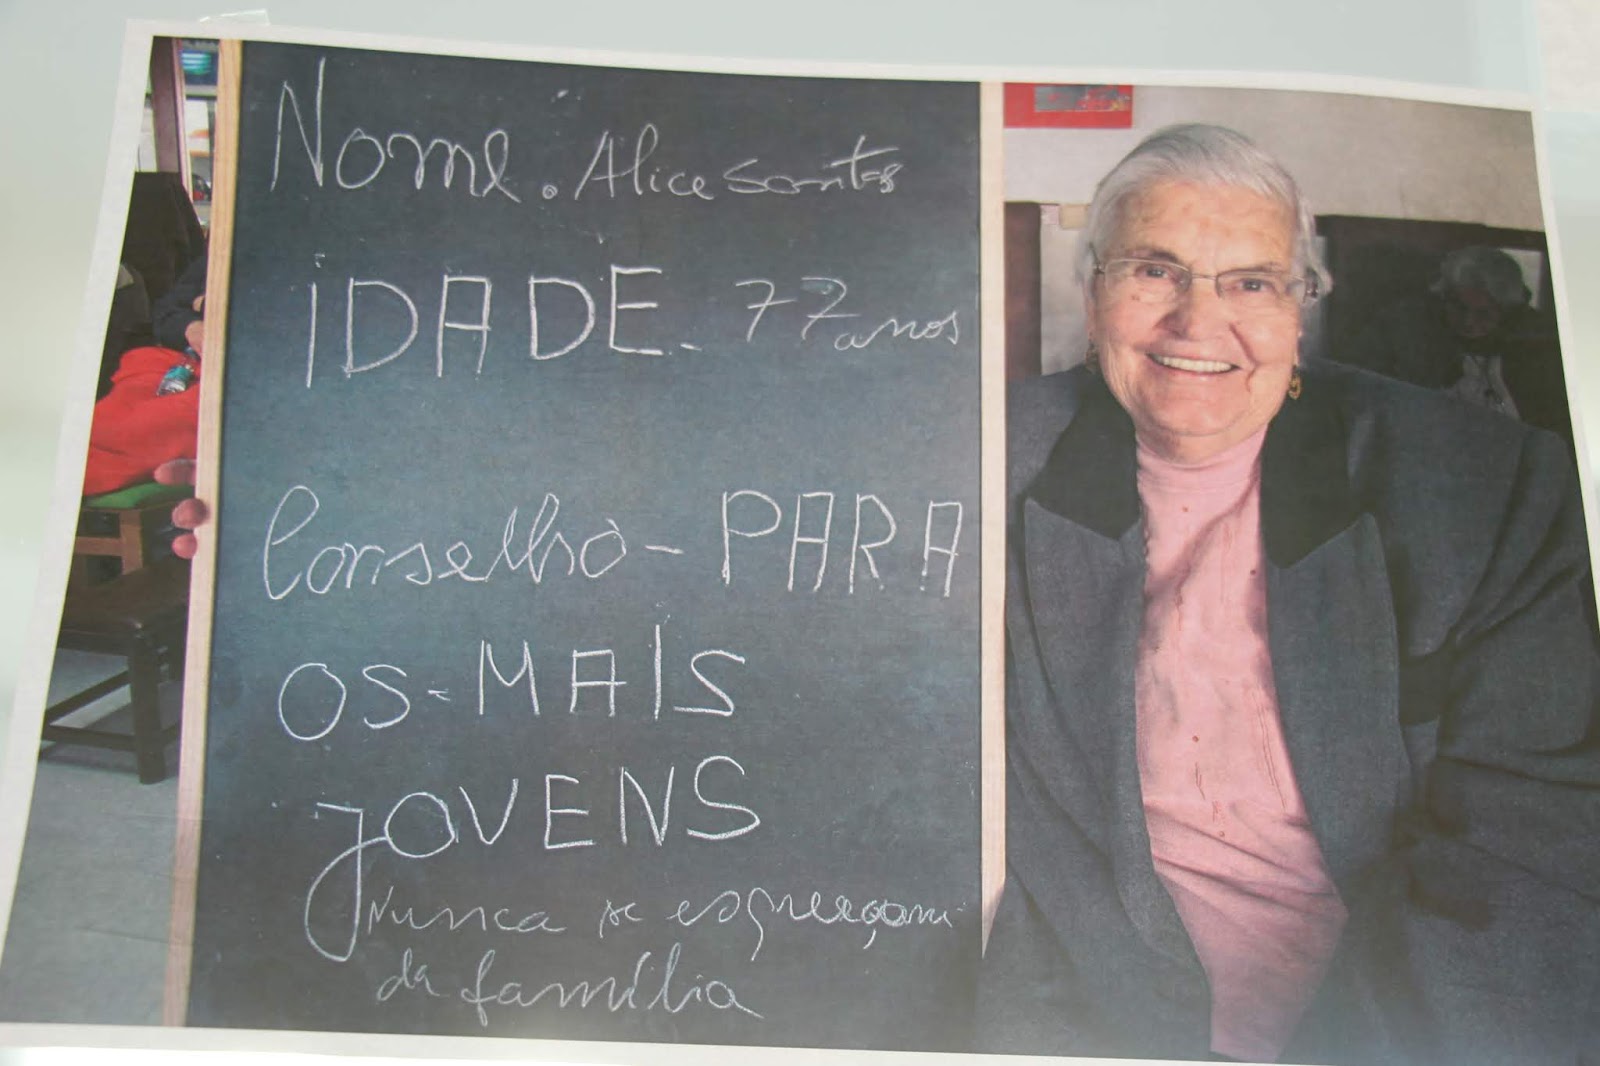 Nome. Alice Santos
IDADE. 77 anos
Conselho - PARA
OS-MAIS
JOVENS
Nunca se esqueçam
da família